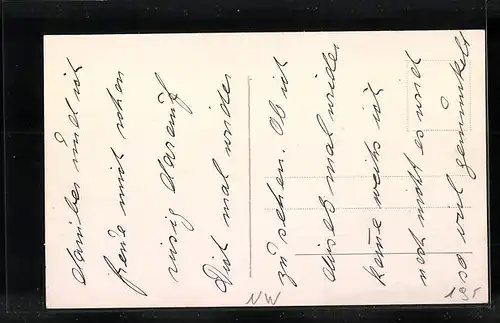 darüber und ich
freue mich schon
riesig darauf
Dich mal wieder
zu sehen. Ob ich
dieses mal wieder
komme weiss ich
noch nicht sowas
so viel gemunkelt
NW
195